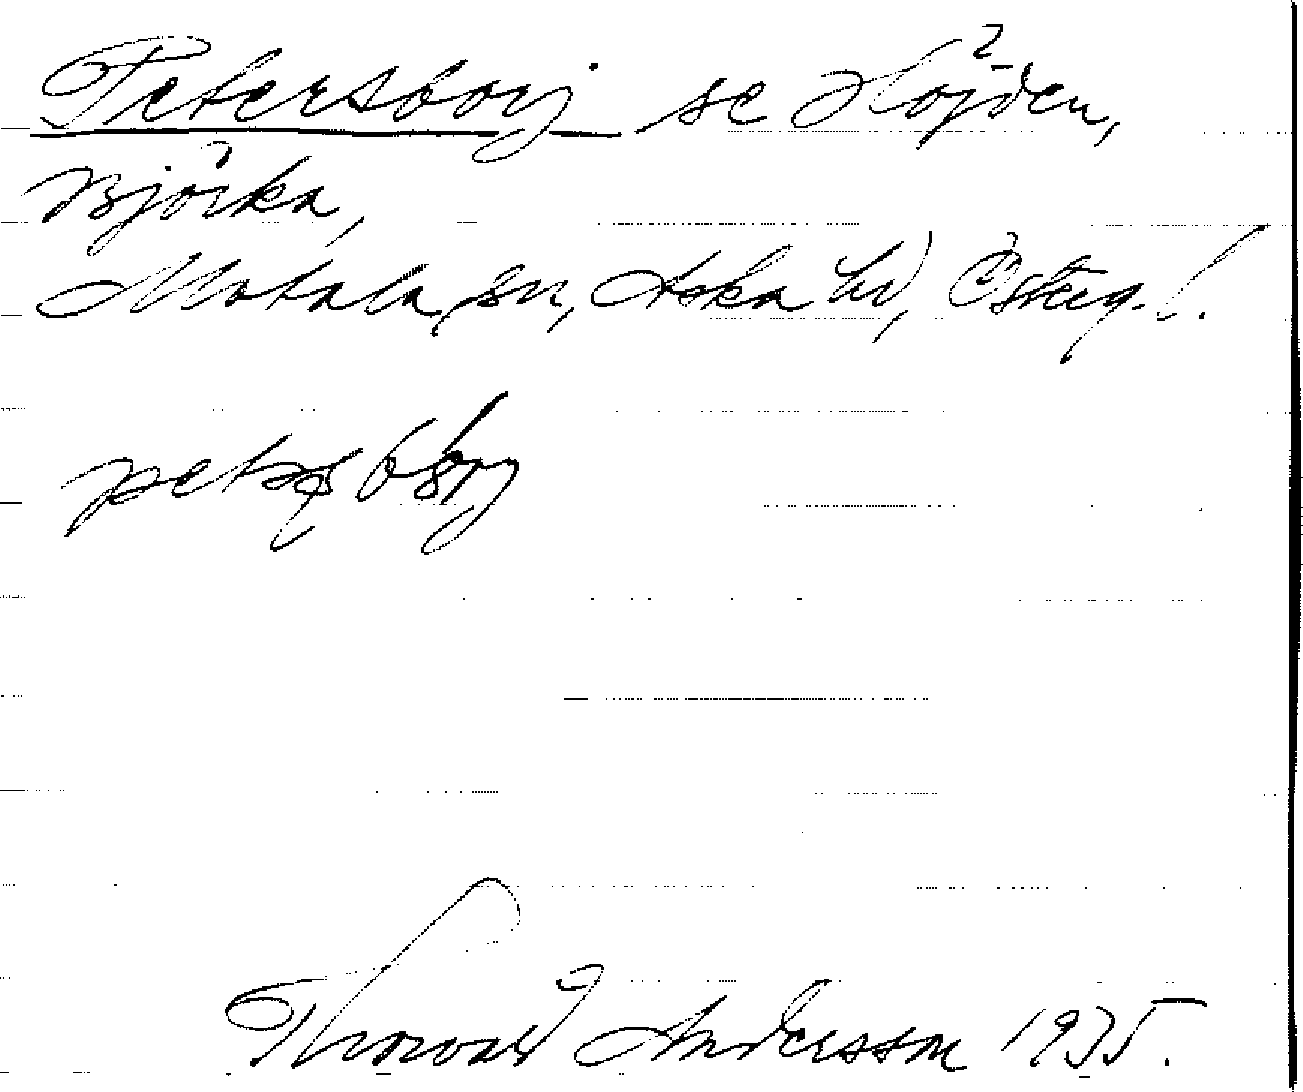 Petersborg se Höjden,
Björka,
Motala sn, Aska hd, Österg. l.
Thorvald Andersson 1935.